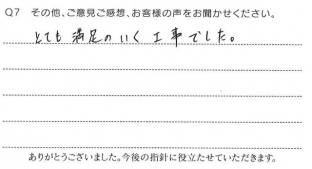 Q7 その他、ご意見ご感想、お客様の声をお聞かせください。
とても満足のいく工事でした。
ありがとうございました。今後の指針に役立たせていただきます。